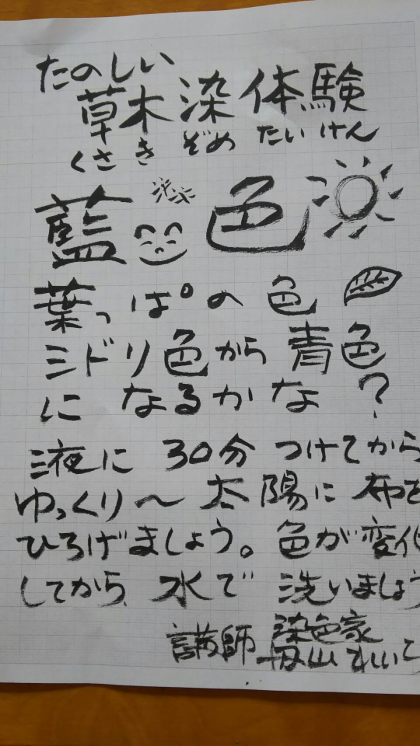 たのしい
草木染体験
くさきぞめたいけん
藍色
葉っぱの色
ミドリ色から青色
になるかな?
液に30分つけてから
ゆっくり〜太陽に布を
ひろげましょう。色が変化
してから水で洗いましょう
講師 染色家
丹山れいこ